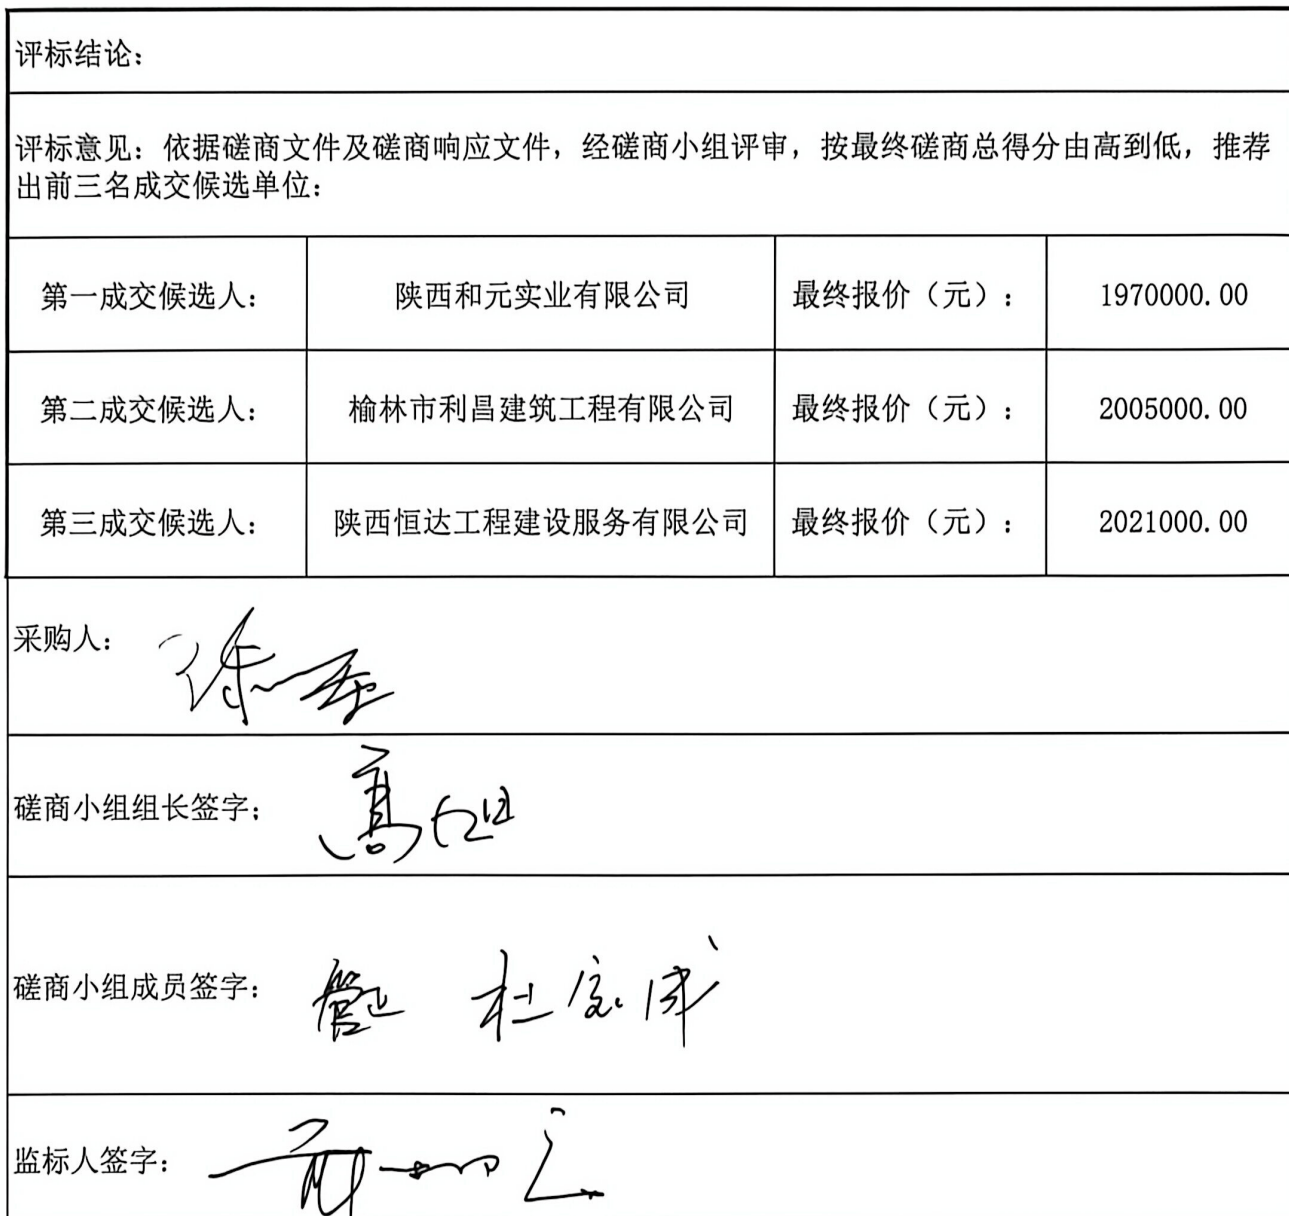 评标结论：
评标意见：依据磋商文件及磋商响应文件，经磋商小组评审，按最终磋商总得分由高到低，推荐
出前三名成交候选单位：
第一成交候选人： 陕西和元实业有限公司 最终报价（元）： 1970000.00
第二成交候选人： 榆林市利昌建筑工程有限公司 最终报价（元）： 2005000.00
第三成交候选人： 陕西恒达工程建设服务有限公司 最终报价（元）： 2021000.00
采购人：
磋商小组组长签字： 高
磋商小组成员签字： 杜
监标人签字：